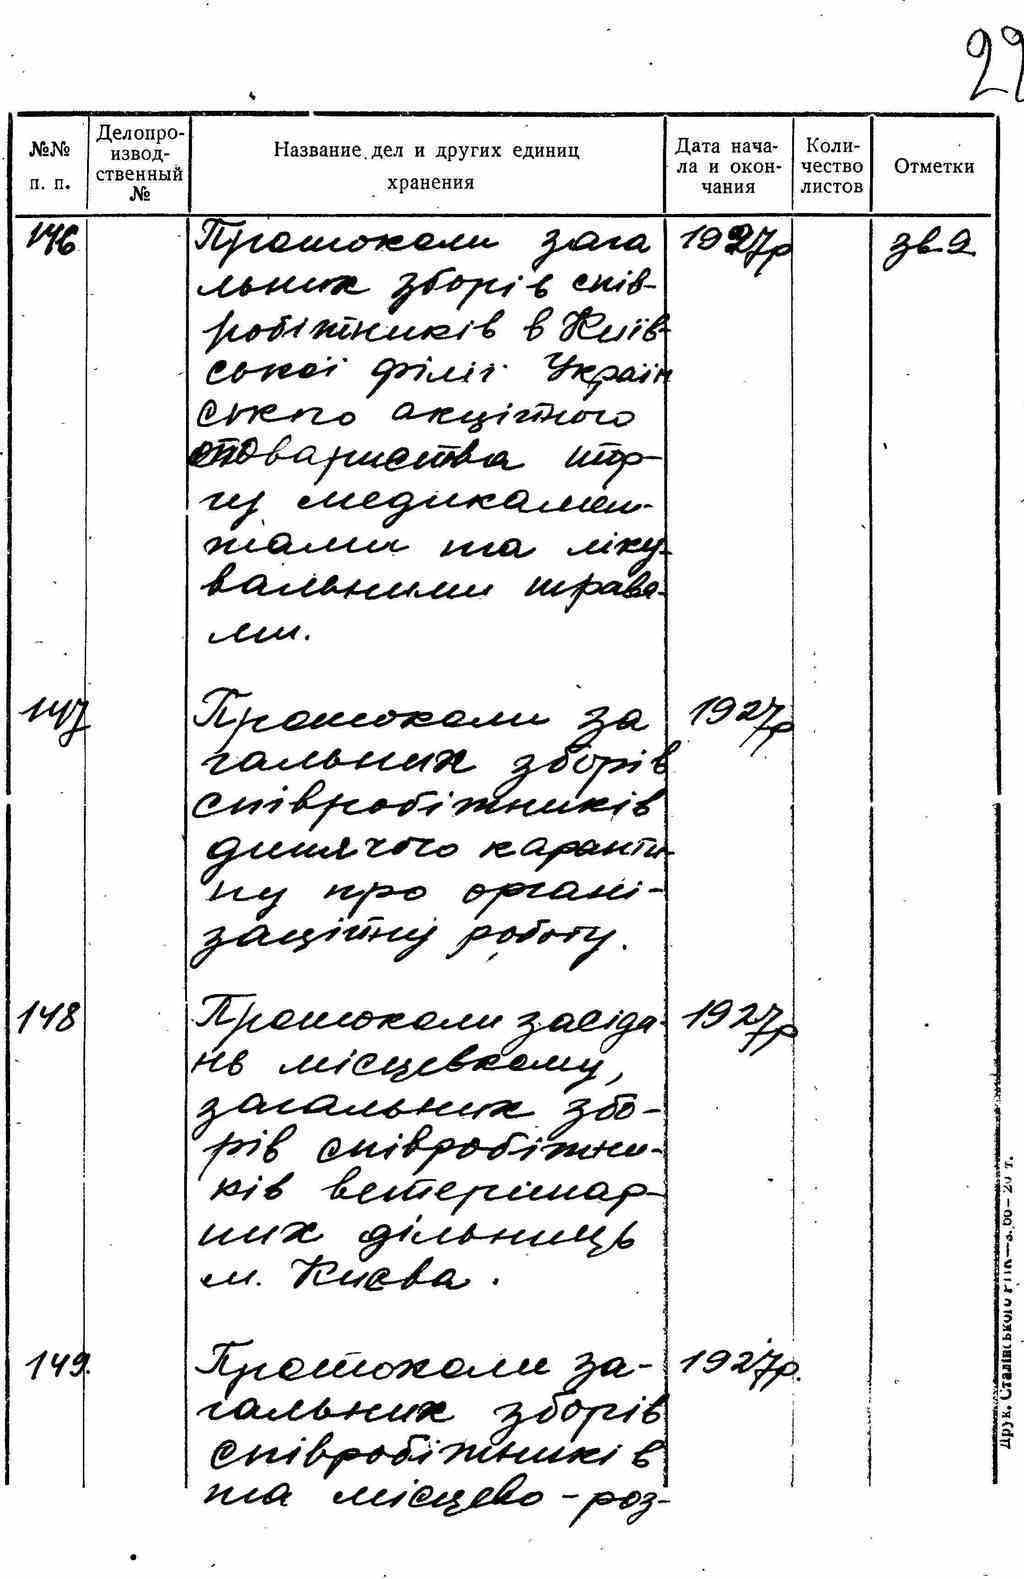 29
№№ п. п.
Делопро-
извод-
ственный
№
Название дел и других единиц
хранения
Дата нача-
ла и окон-
чания
Коли-
чество
листов
Отметки
146 Протоколи зага 1927р зв. 2
льних зборів спів-
робітників в Київ-
ської філії Україн
ського акційного
товариства тор-
гу медикамен-
тами та ліку-
вальними трава-
ми.
147 Протоколи за 1927р
гальних зборів
співробітників
дитячого каранти-
ну про органі-
заційну роботу.
148 Протоколи засіда- 1927р
нь місцевкому,
загальних збо-
рів співробітни-
ків ветеринар-
них дільниць
м. Києва.
149. Протоколи за- 1927р.
гальних зборів
співробітників
та місцево-роз-
Друк. Сталінського РПК—з. 60— 20 т.